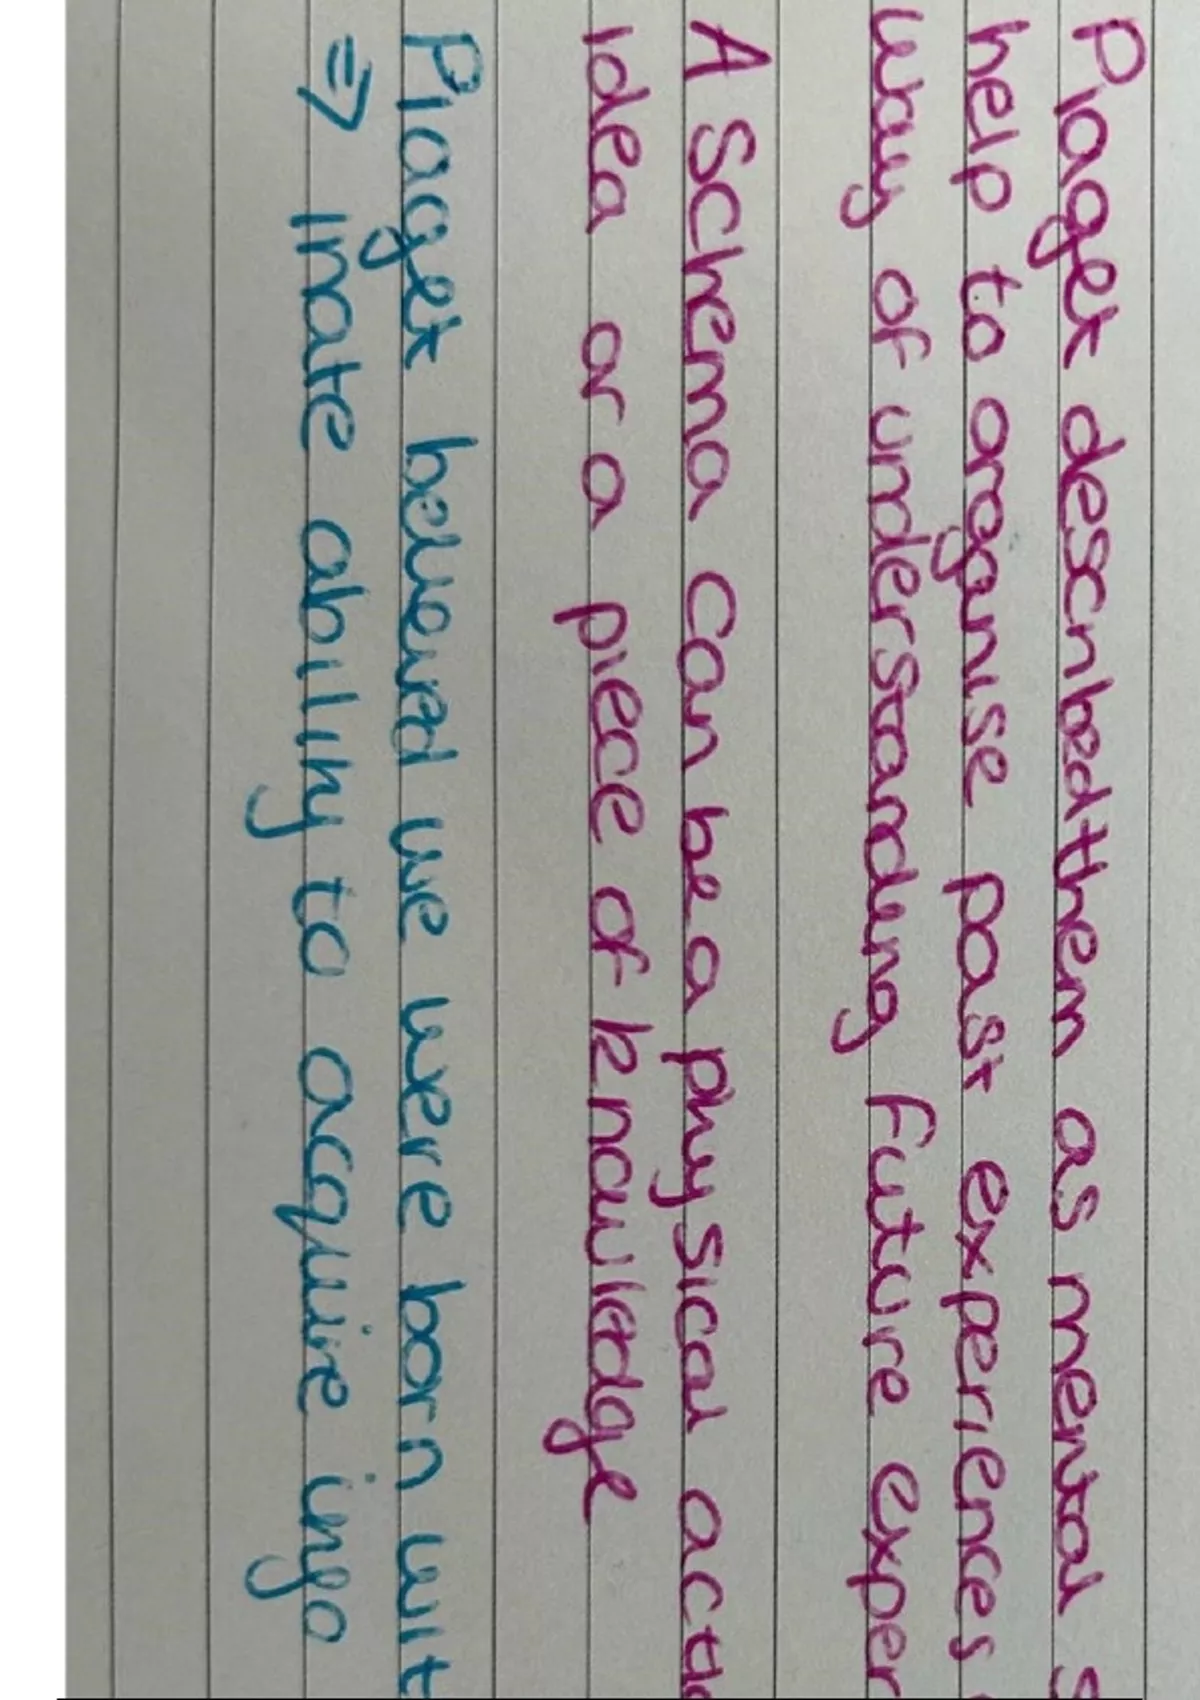 Piaget described them as mental s
help to organise past experiences
way of understanding future exper
A Schema can be a physical acti
idea or a piece of knowledge
Piaget believed we were born wit
⇒ inate ability to acquire info